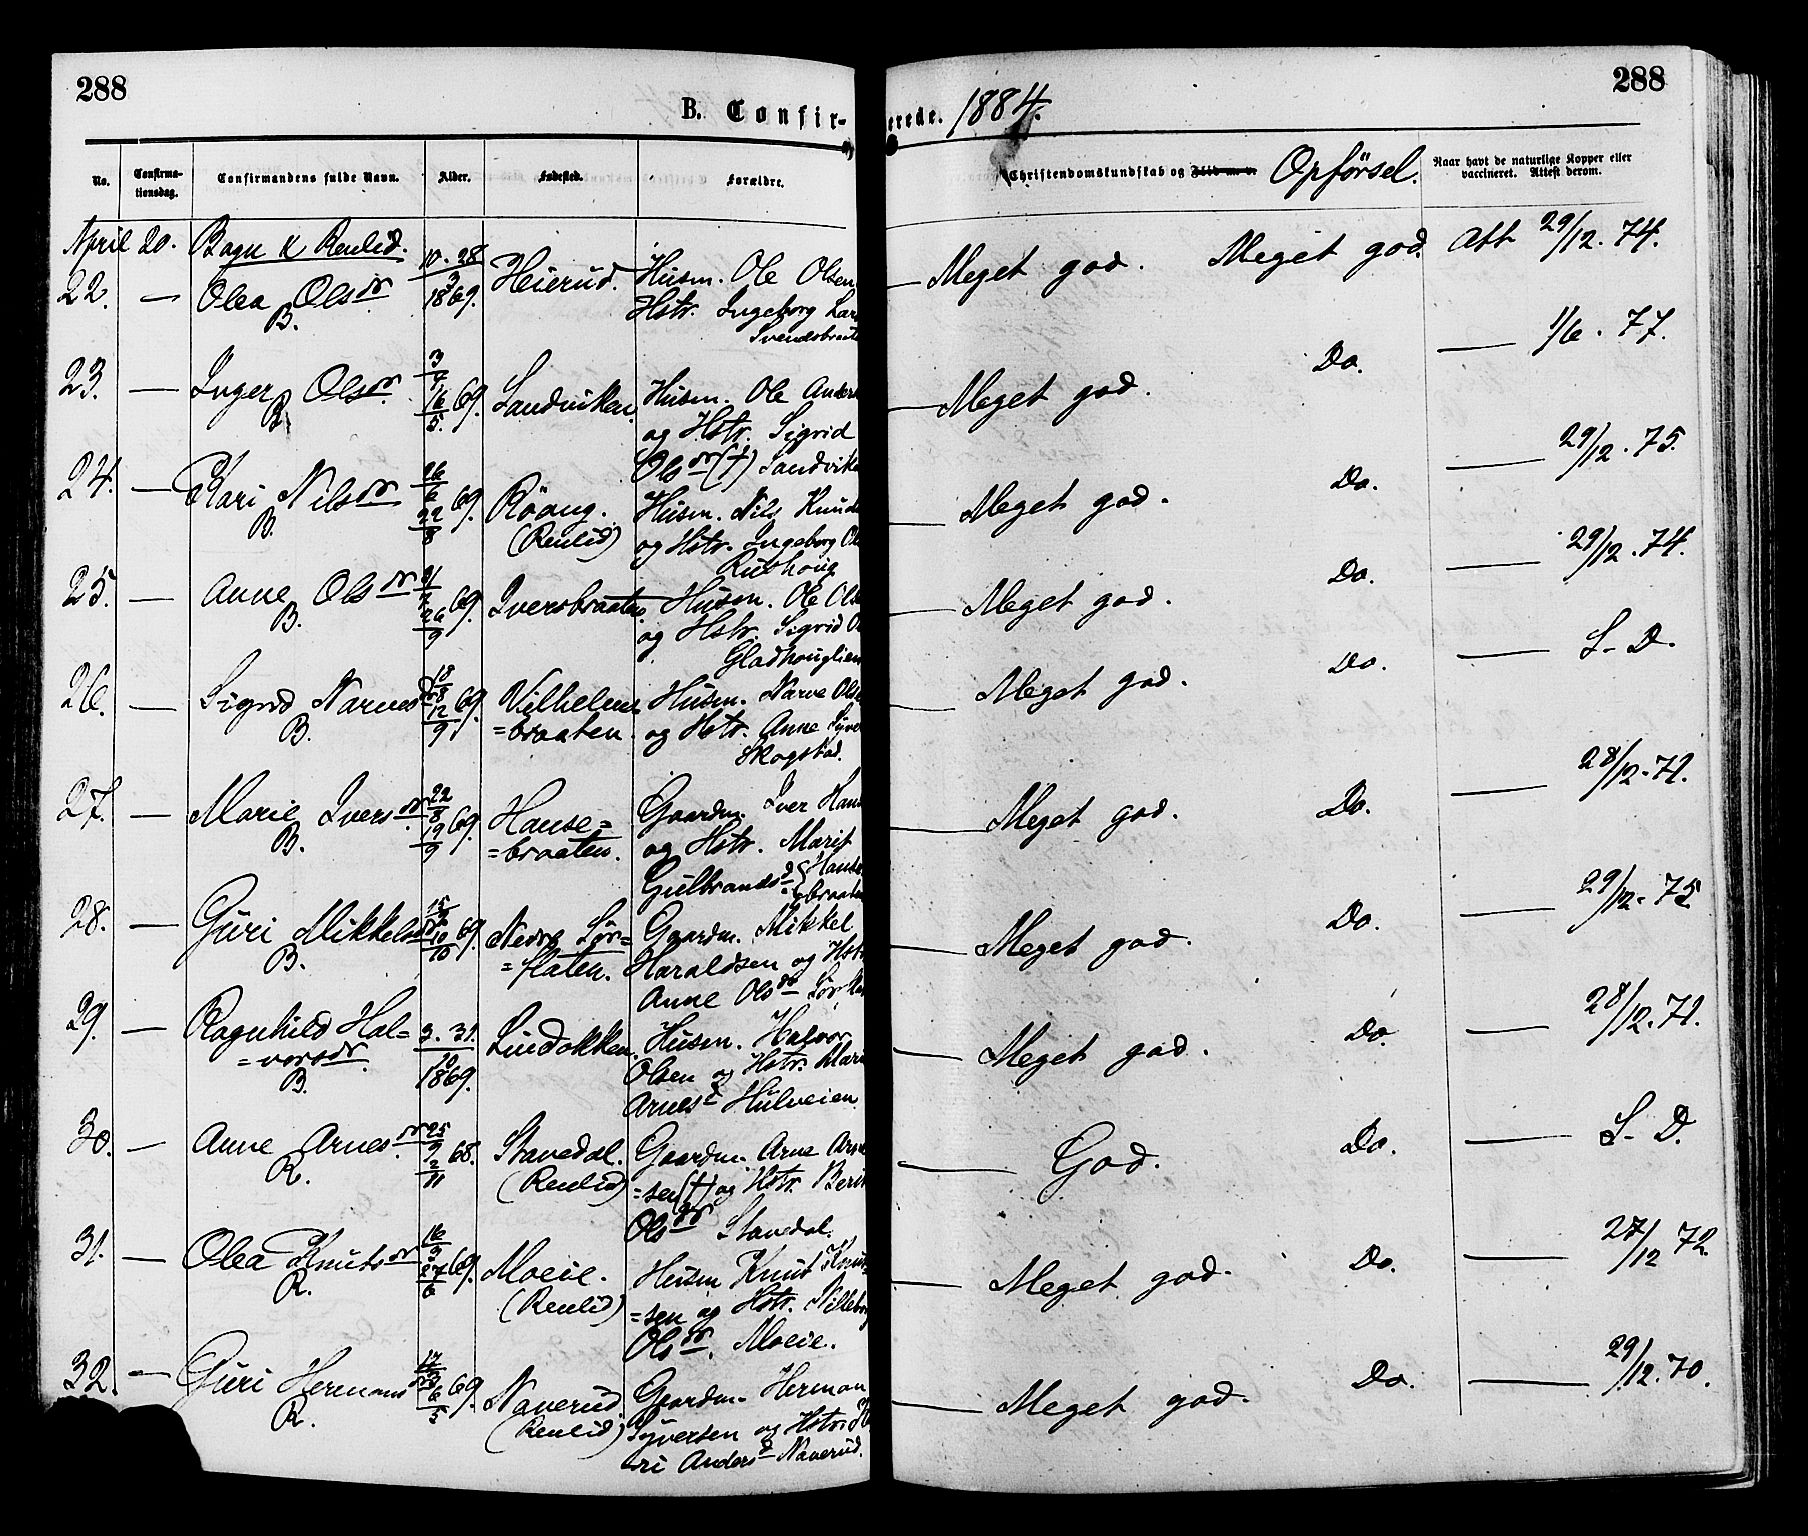 288
288
B. Confir-
erede. 1884.
No.
Confirma-
tionsdag.
Confirmandens fulde Navn.
Alder.
Fødested.
Forældre.
Christendomskundskab og Flid m. v. Opførsel.
Naar havt de naturlige Kopper eller
vaccineret. Attest derom.
April 20. Bagn & Renlid.
22. — Olea Olsdr B. 10. 28/3 1869. Heierud. Husm. Ole Olsen
Hstr. Ingeborg Lar
Svendsbraate
— Meget god. Meget god. Att 29/12. 74.
23. — Inger Olsdr B. 3/4 16/5 69. Sandviken. Husm. Ole Anders
og Hstr. Sigrid
Olsdr (†) Sandvike
— Meget god. Do. — 1/6. 77.
24. — Kari Nilsdr B. 26/6 22/8 69. Röang.
(Renlid)
Husm. Nils Knuds
og Hstr. Ingeborg Ol
Rushoug
— Meget god. Do. — 29/12. 75.
25. — Anne Olsdr B. 26/9 69. Iversbraaten. Husm. Ole Olse
og Hstr. Sigrid O
Gladhouglien
— Meget god. Do. — 29/12. 74.
26. — Sigrid Narvesd B. 18/8 12/9 69. Vilhelms
=braaten.
Husm. Narve Olse
og Hstr. Anne Syve
Skogstad.
— Meget god. Do. — S. D.
27. — Marie Iversdr B. 22/8 19/9 69. Hanse=
=braaten.
Gaardm. Iver Hans
og Hstr. Marit
Gulbrandsd Hanse
braaten
— Meget god. Do. — 28/12. 71.
28. — Guri Mikkelsd B. 10/10 69. Nedre Sör=
=flaten.
Gaardm. Mikkel
Haraldsen og Hstr
Anne Olsdr Sör
— Meget god. Do. — 29/12. 75.
29. — Ragnhild Hal-
=vorsdr. B.
3. 31/10 1869. Lindokken. Husm. Halvor
Olsen og Hstr. Mari
Arnesd Hulveien
— Meget god. Do. — 28/12. 71.
30. — Anne Arnesdr. R. 25/9 2/11 68. Stavedal.
(Renlid)
Gaardm. Arne Arne
=sen (†) og Hstr. Berit
Olsdr Stavedal.
— God. Do. — S. D.
31. — Olea Knutsdr R. 16/3 27/6 69. Moeie.
(Renlid)
Husm Knut Knut
=sen og Hstr. Villebor
Olsdr. Moeie.
— Meget god. Do. — 27/12 72.
32. — Guri Hermansd R. 6/5 69. Naverud.
(Renlid)
Gaardm. Herman
Syversen og Hstr.
ri Andersd Naverud.
— Meget god. Do. — 29/12. 70.